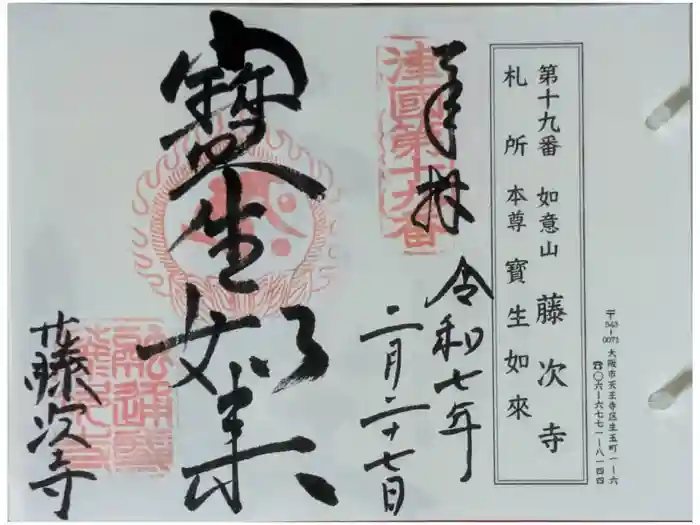 〒543-0073 大阪市天王寺区生玉町一-六
☎〇六-六七七一-八一四四
第十九番 如意山 藤次寺
札所 本尊 寶生如來
奉拝 令和七年
二月二十七日
津國第十九番
寶生如来
藤次寺